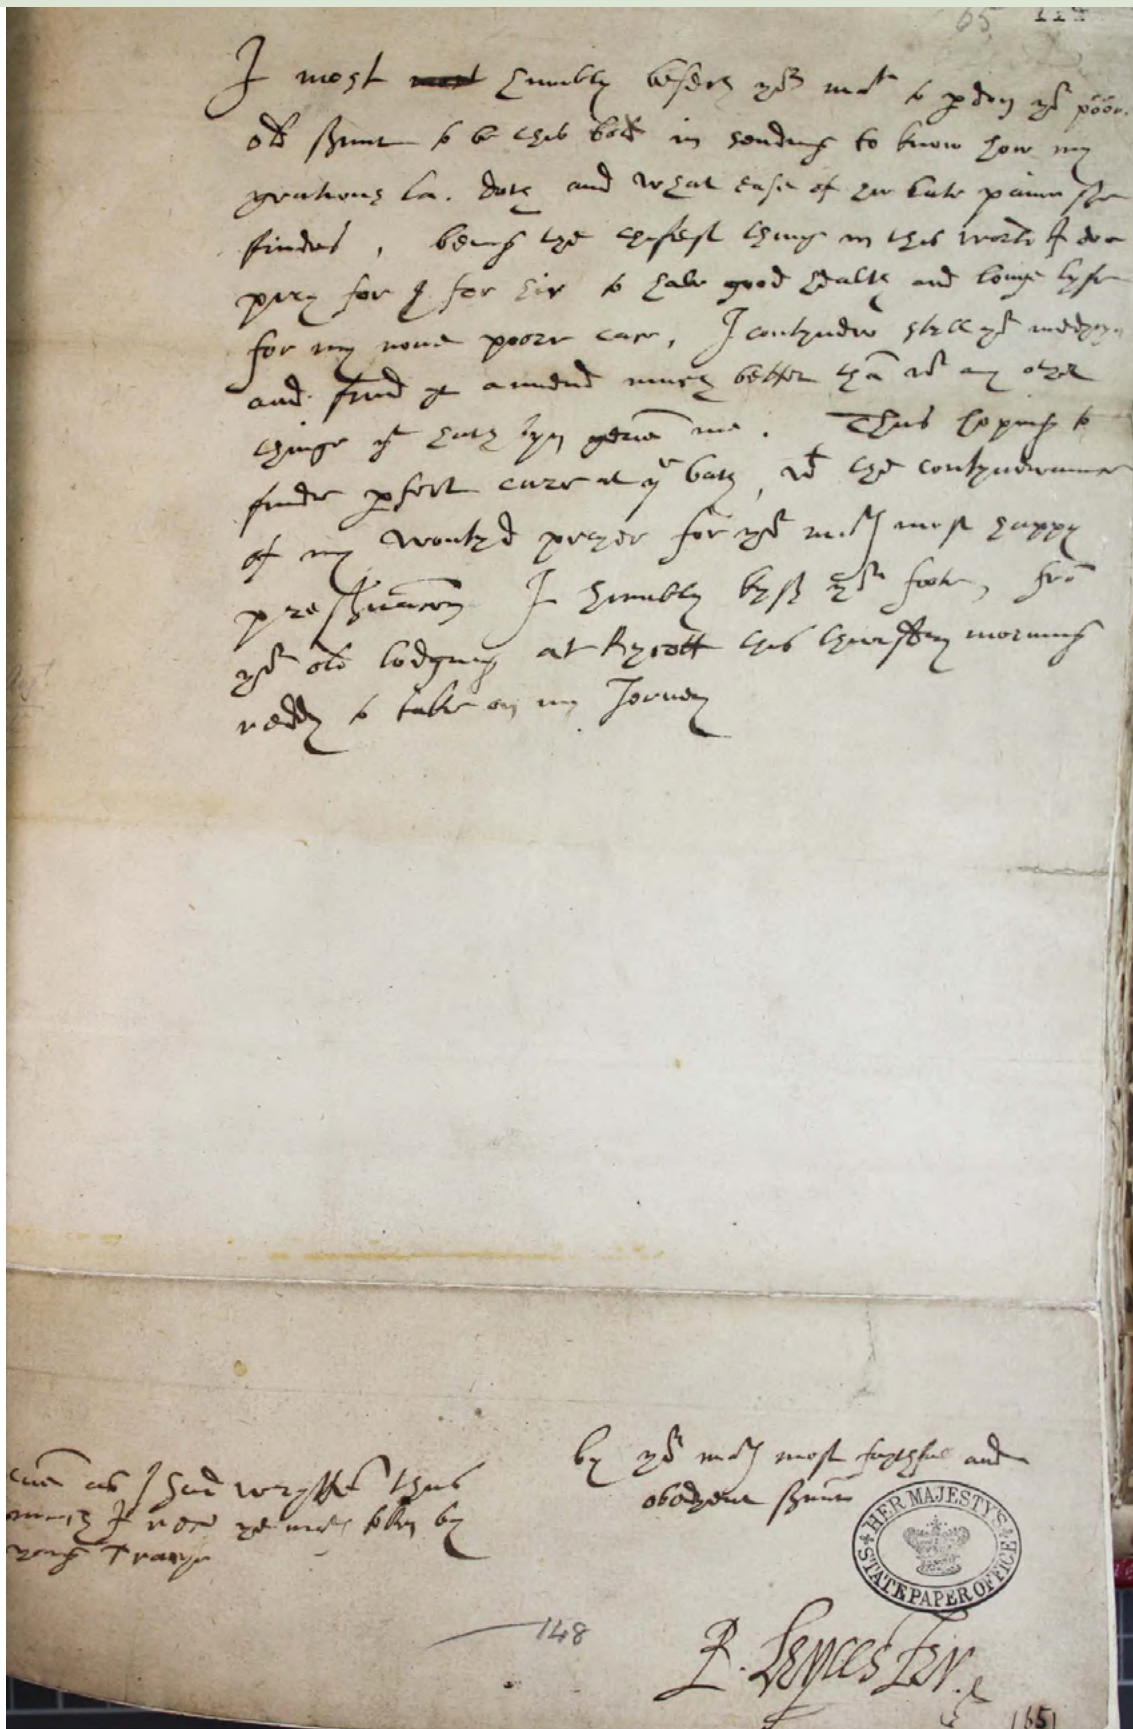 65
I most humbly beseche yor matie to pdon yor poore
old srvant to be thus bold in sending to know how my
gratious La. doth and what ease of her late paine she
findes, being the chefest thing in this world I doe
pray for & for hir to have good health and longe lyfe
for my none poore case, I contynew still yor medycyn
and find yt amend much better than wt any other
thinge yt hath byn geven me. Thus hoping to
finde pfect cure at ye bath, wt the contynewance
of my wontyd prayer for yor mats most happy
preservacion I humbly kyss yor foote, fro
yor old lodging at Rycott this thursday morning
reddy to take on my Jorney
by yor mats most faythfull and
obedyent srvant
even as I had wrytten thus
much I rece yr mats token by
yong Tracye
HER MAJESTY'S
STATE PAPER OFFICE
148
R. Leycester